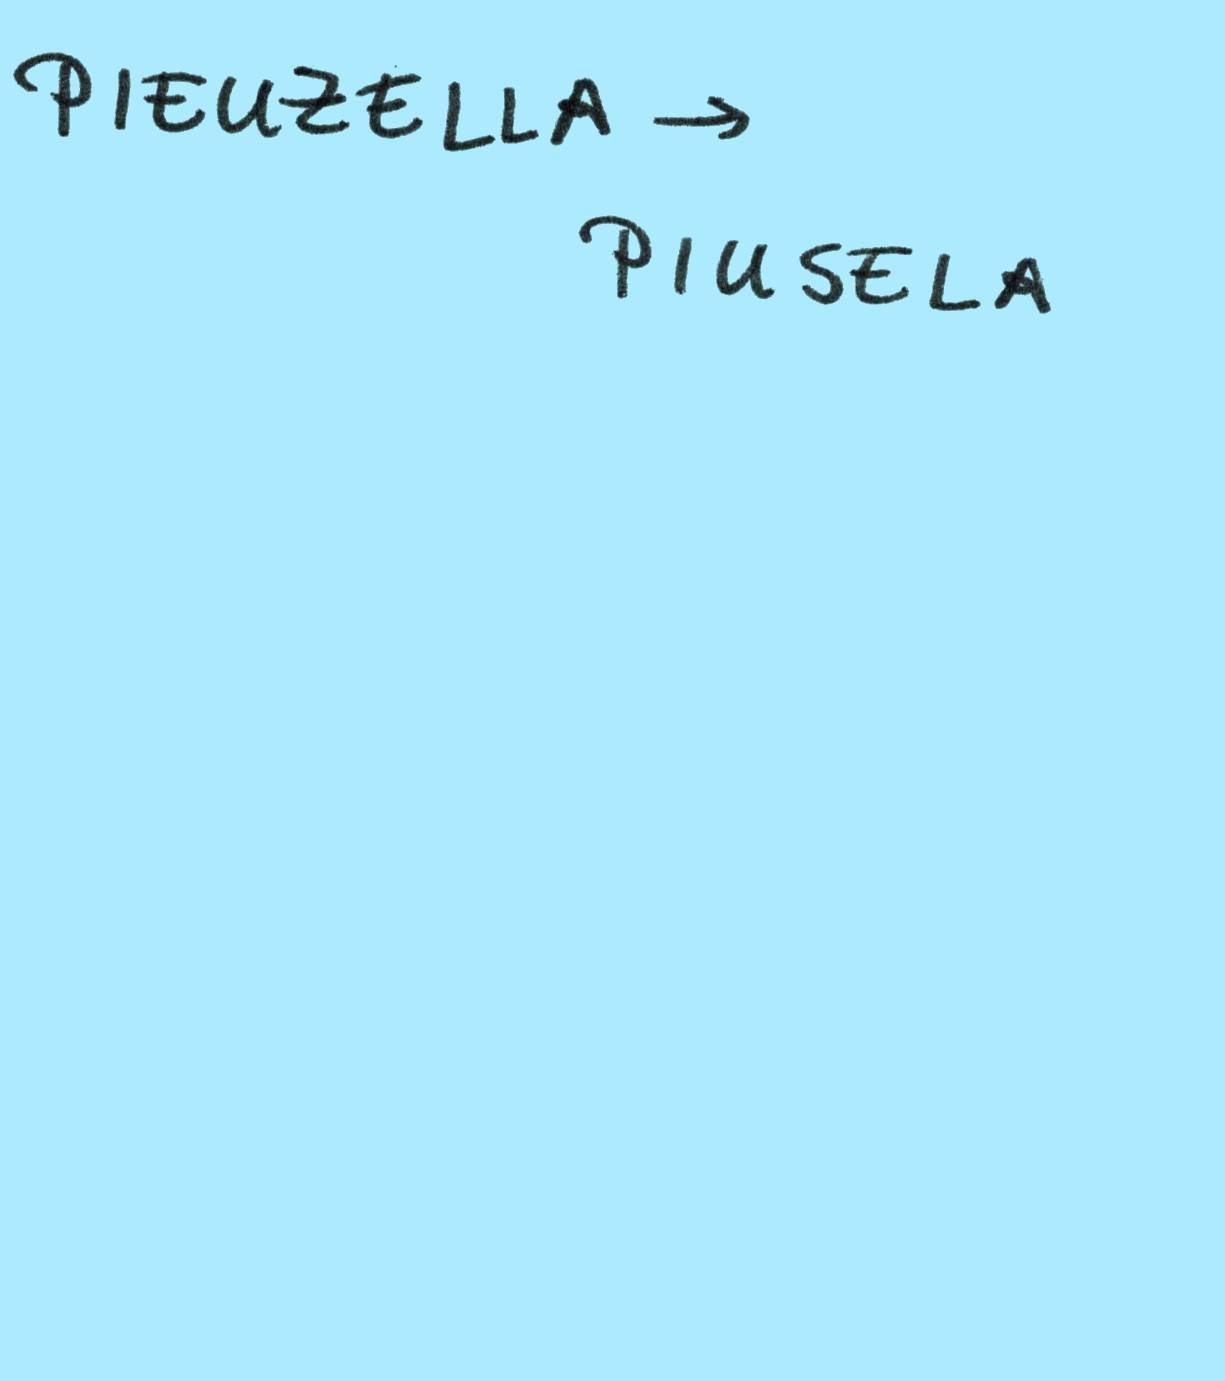 PIEUZELLA →
PIUSELA